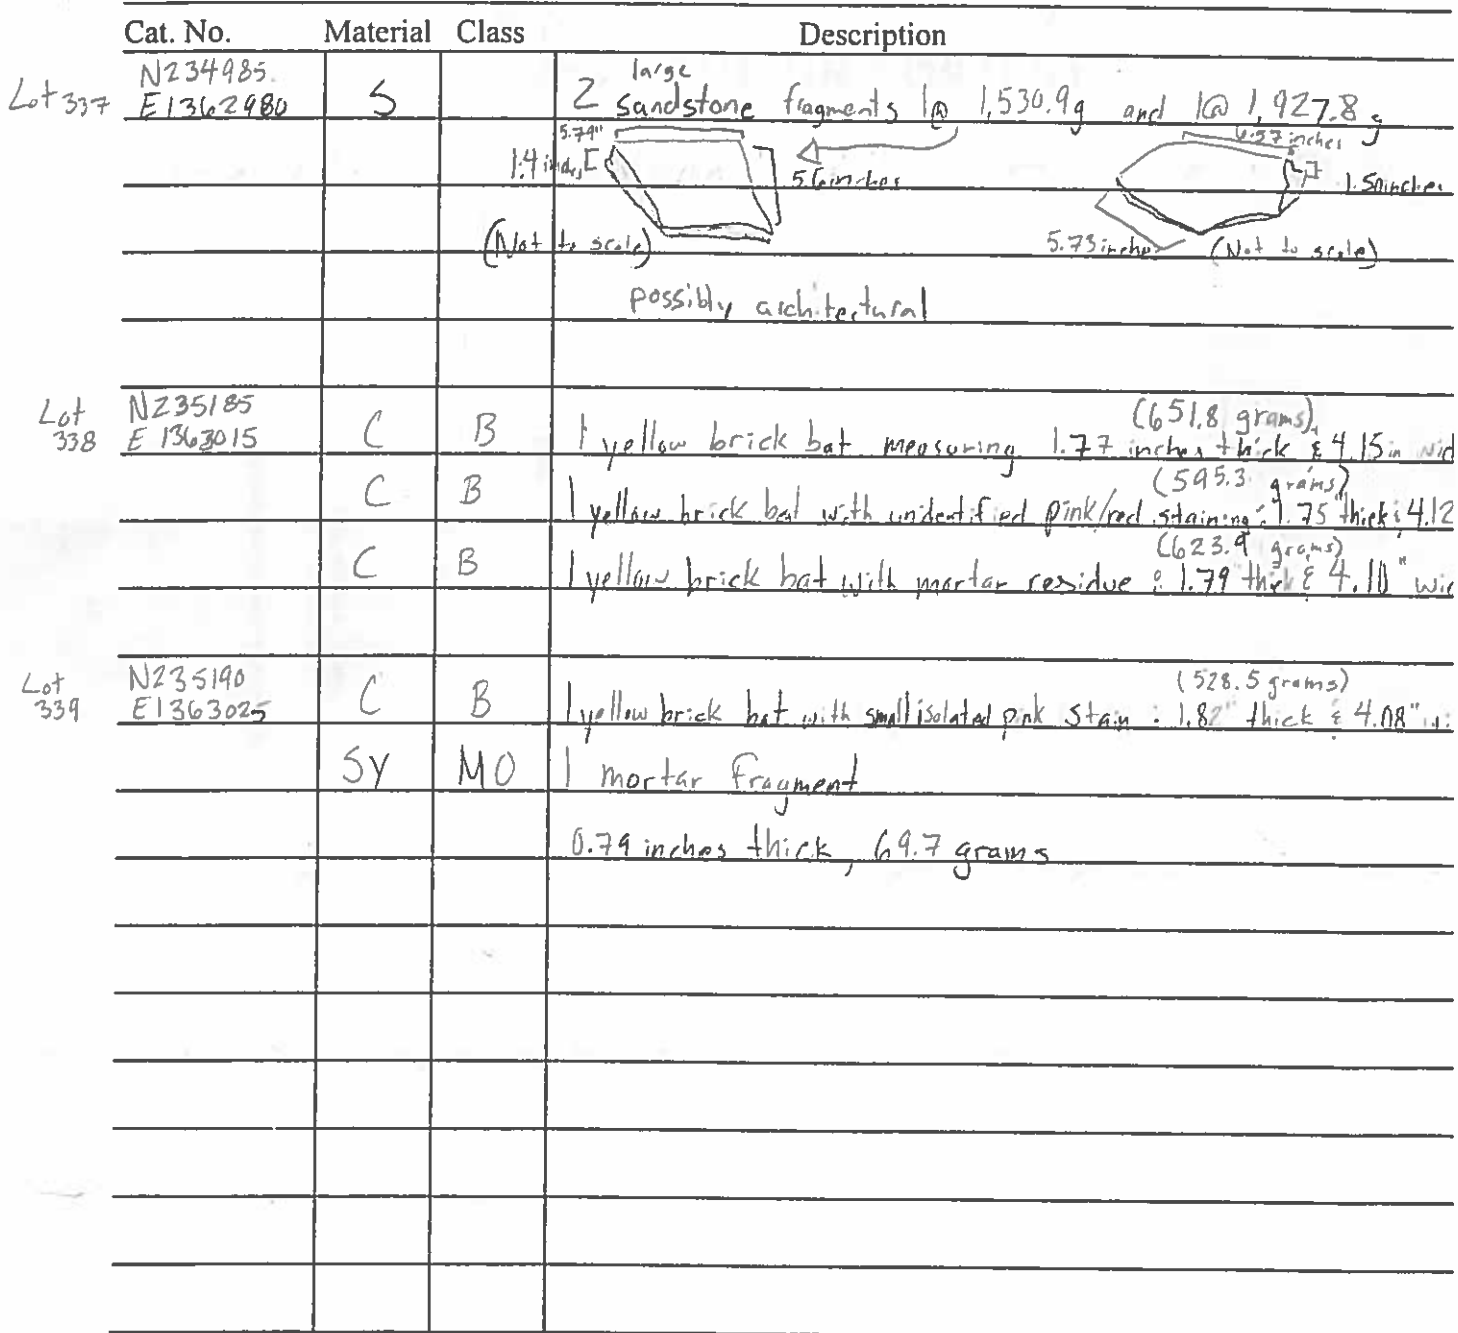 Cat. No. Material Class Description
Lot 337 N234985 E1362980 S 2 large sandstone fragments 1@ 1,530.9g and 1@ 1,927.8 g
5.79" 6.57 inches
1.4 inches 5.6 inches 1.5 inches
(Not to scale) 5.73 inches (Not to scale)
possibly architectural
Lot 338 N235185 E 1363015 C B 1 yellow brick bat measuring 1.77 inches thick & 4.15 in wid (651.8 grams)
C B 1 yellow brick bat with unidentified pink/red staining: 1.75" thick & 4.12 (595.3 grams)
C B 1 yellow brick bat with mortar residue : 1.79" thick & 4.10" wid (623.9 grams)
Lot 339 N235190 E1363025 C B 1 yellow brick bat with small isolated pink stain : 1.82" thick & 4.08" wi (528.5 grams)
SY MO 1 mortar fragment
0.79 inches thick, 69.7 grams